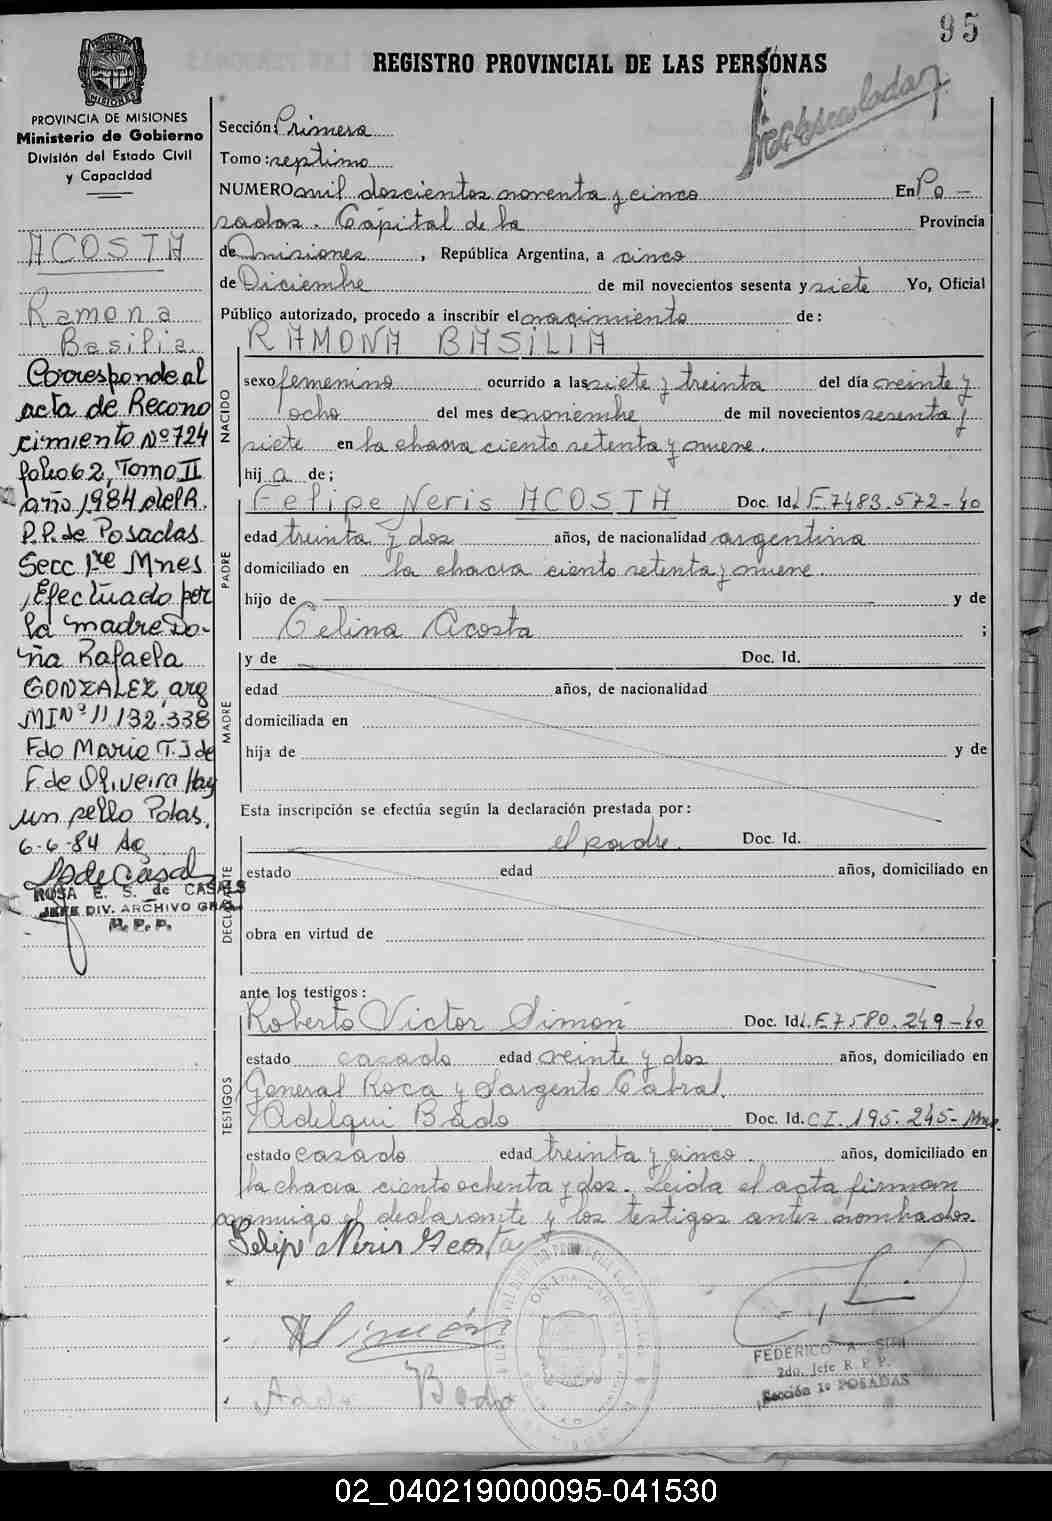 95
REGISTRO PROVINCIAL DE LAS PERSONAS
PROVINCIA DE MISIONES
Ministerio de Gobierno
División del Estado Civil
y Capacidad
ACOSTA
Ramona
Basilia.
Corresponde al
acta de Recono
cimiento Nº 724
folio 62, Tomo II
año 1984 del R.
P.P. de Posadas
Secc 1re Mnes
Efectuado por
la madre Do-
ña Rafaela
GONZALEZ, arg
MI Nº 11.132.338
Fdo Mario T. J de
F. de Oliveira Hay
un sello Posas.
6-6-84
ROSA E. S. de CASALS
JEFE DIV. ARCHIVO GRAL
R. P. P.
Sección: Primera
Tomo: septimo
NUMERO mil doscientos noventa y cinco En Po-
sadas. Capital de la Provincia
de Misiones, República Argentina, a cinco
de Diciembre de mil novecientos sesenta y siete Yo, Oficial
Público autorizado, procedo a inscribir el nacimiento de:
RAMONA BASILIA
NACIDO
sexo femenino ocurrido a las siete y treinta del día veinte y
ocho del mes de noviembre de mil novecientos sesenta y
siete en la chacra ciento setenta y nueve.
hij a de;
PADRE
Felipe Neris ACOSTA Doc. Id. L.E 7483.572-40
edad treinta y dos años, de nacionalidad argentina
domiciliado en la chacra ciento setenta y nueve.
hijo de y de
Celina Acosta ;
MADRE
y de Doc. Id.
edad años, de nacionalidad
domiciliada en
hija de y de
Esta inscripción se efectúa según la declaración prestada por:
DECLARANTE
el padre. Doc. Id.
estado edad años, domiciliado en
obra en virtud de
ante los testigos:
TESTIGOS
Roberto Victor Simón Doc. Id. L.E 7580.249-40
estado casado edad veinte y dos años, domiciliado en
General Roca y Sargento Cabral.
Adelqui Bado Doc. Id. C I. 195.245-Mnes.
estado casado edad treinta y cinco. años, domiciliado en
la chacra ciento ochenta y dos. Leida el acta firman
conmigo el declarante y los testigos antes nombrados.
Felipe Neris Acosta
Simón
Bado
FEDERICO A.
2do. Jefe R. P. P.
Sección 1º POSADAS
02_040219000095-041530